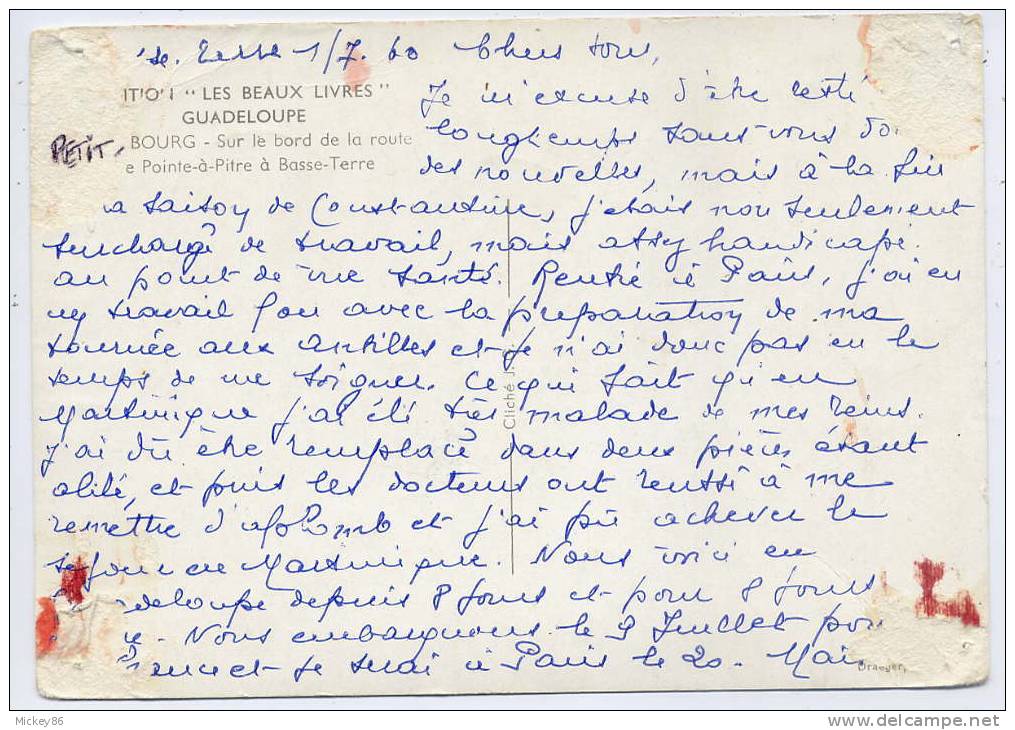 se. Terre 1/7. 60 Chers tous,
ITION "LES BEAUX LIVRES"
GUADELOUPE
PETIT - BOURG - Sur le bord de la route
e Pointe-à-Pitre à Basse-Terre
Je m'excuse d'être resté
longtemps sans vous do
des nouvelles, mais à la fin
a saison de Constantine, j'étais non seulement
surchargé de travail, mais assez handicapé
au point de vue santé. Rentré à Paris, j'ai eu
un travail fou avec la préparation de ma
tournée aux Antilles et je n'ai donc pas eu le
temps de me soigner. Ce qui fait qu'en
Martinique j'ai été très malade de mes reins.
J'ai dû être remplacé dans deux pièces étant
alité, et puis les docteurs ont réussi à me
remettre d'aplomb et j'ai pu achever le
séjour en Martinique. Nous voici en
deloupe depuis 8 jours et pour 8 jours
re. Nous embarquons le 9 Juillet pour
France et je serai à Paris le 20. Mais
Cliché J.
Draeger,
Mickey86
www.delcampe.net